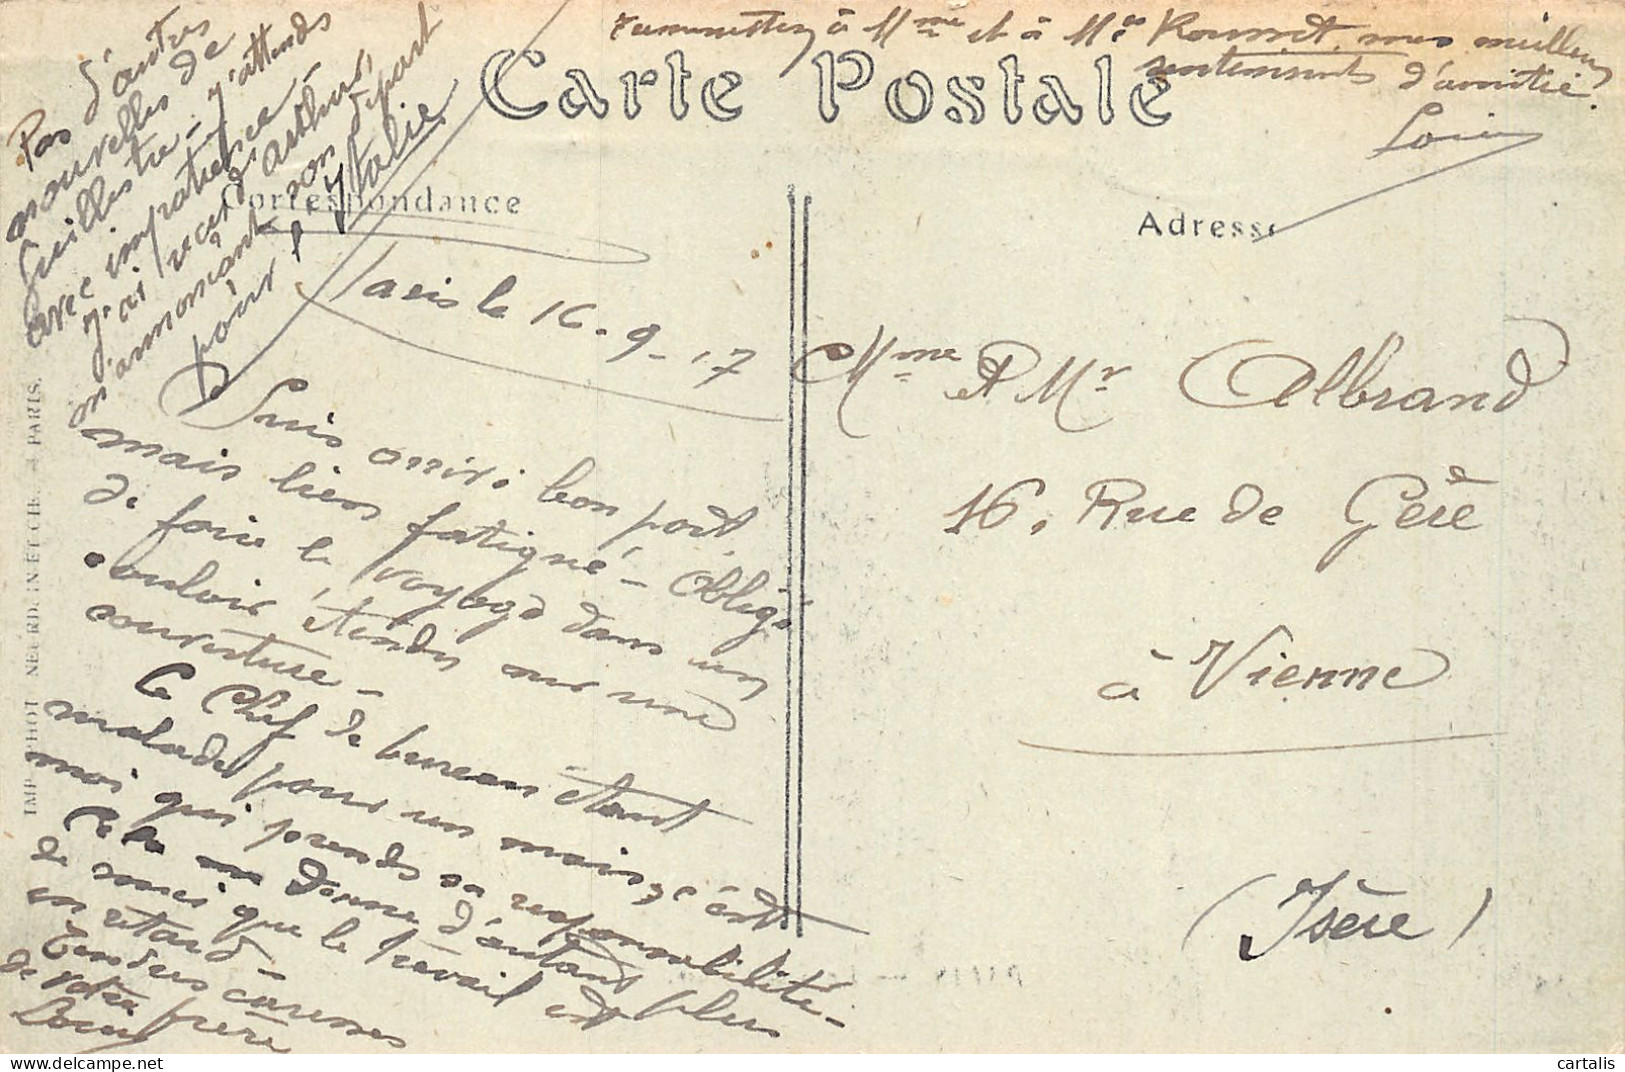 Pas d'autres
nouvelles de
Guillestre - j'attends
avec impatience -
j'ai reçu d'arthur,
m'annonçant son départ
pour l'Italie
transmettez à Mme et à Mr mes meilleurs
sentiments d'amitié.
Louis
Carte Postale
Correspondance
Adresse
Paris le 16-9-17
Suis arrivé bon port,
mais bien fatigué - Obligé
de faire le voyage dans un
couloir, étendu sur une
couverture -
Le Chef de bureau étant
malade pour un mois, c'est
moi qui prends sa responsabilité -
Cela me donne d'autant plus
de souci que le travail est
en retard -
Tendres caresses
de votre frère
Louis
Mme & Mr Albrand
16, Rue de Gère
à Vienne
(Isère)
IMP. PHOT. NEURDEIN ET CIE. - PARIS.
cartalis